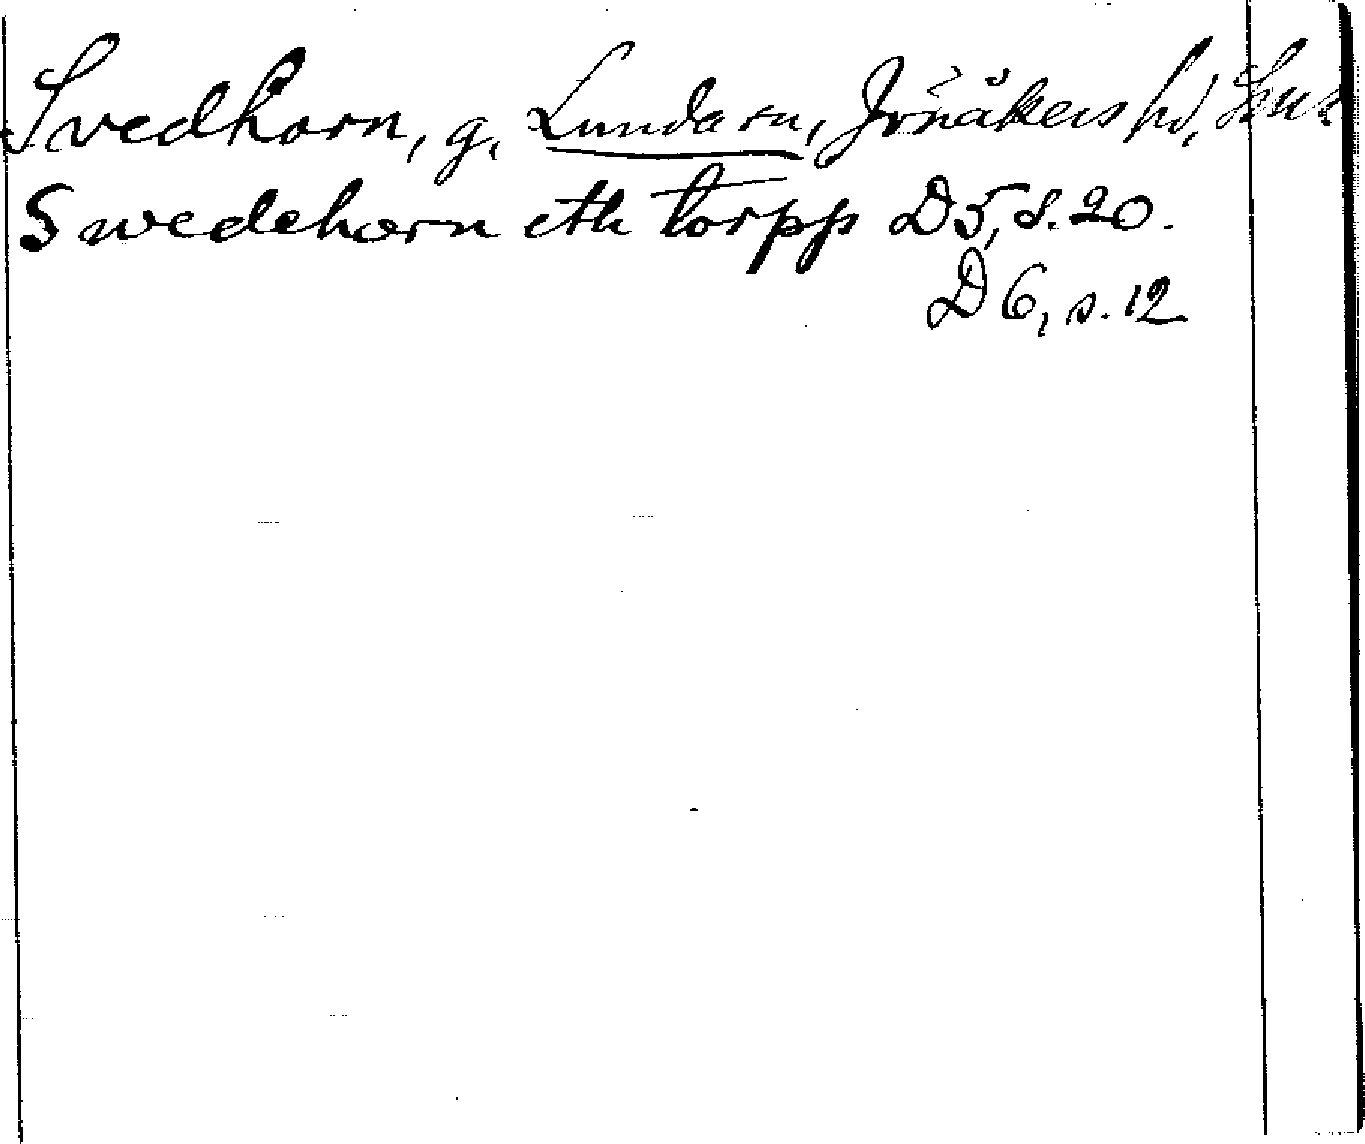 Svedhorn, g. Lunda sn, Jönåkers hd,
Swedehorn eth torpp D5, s. 20.
D6, s. 12